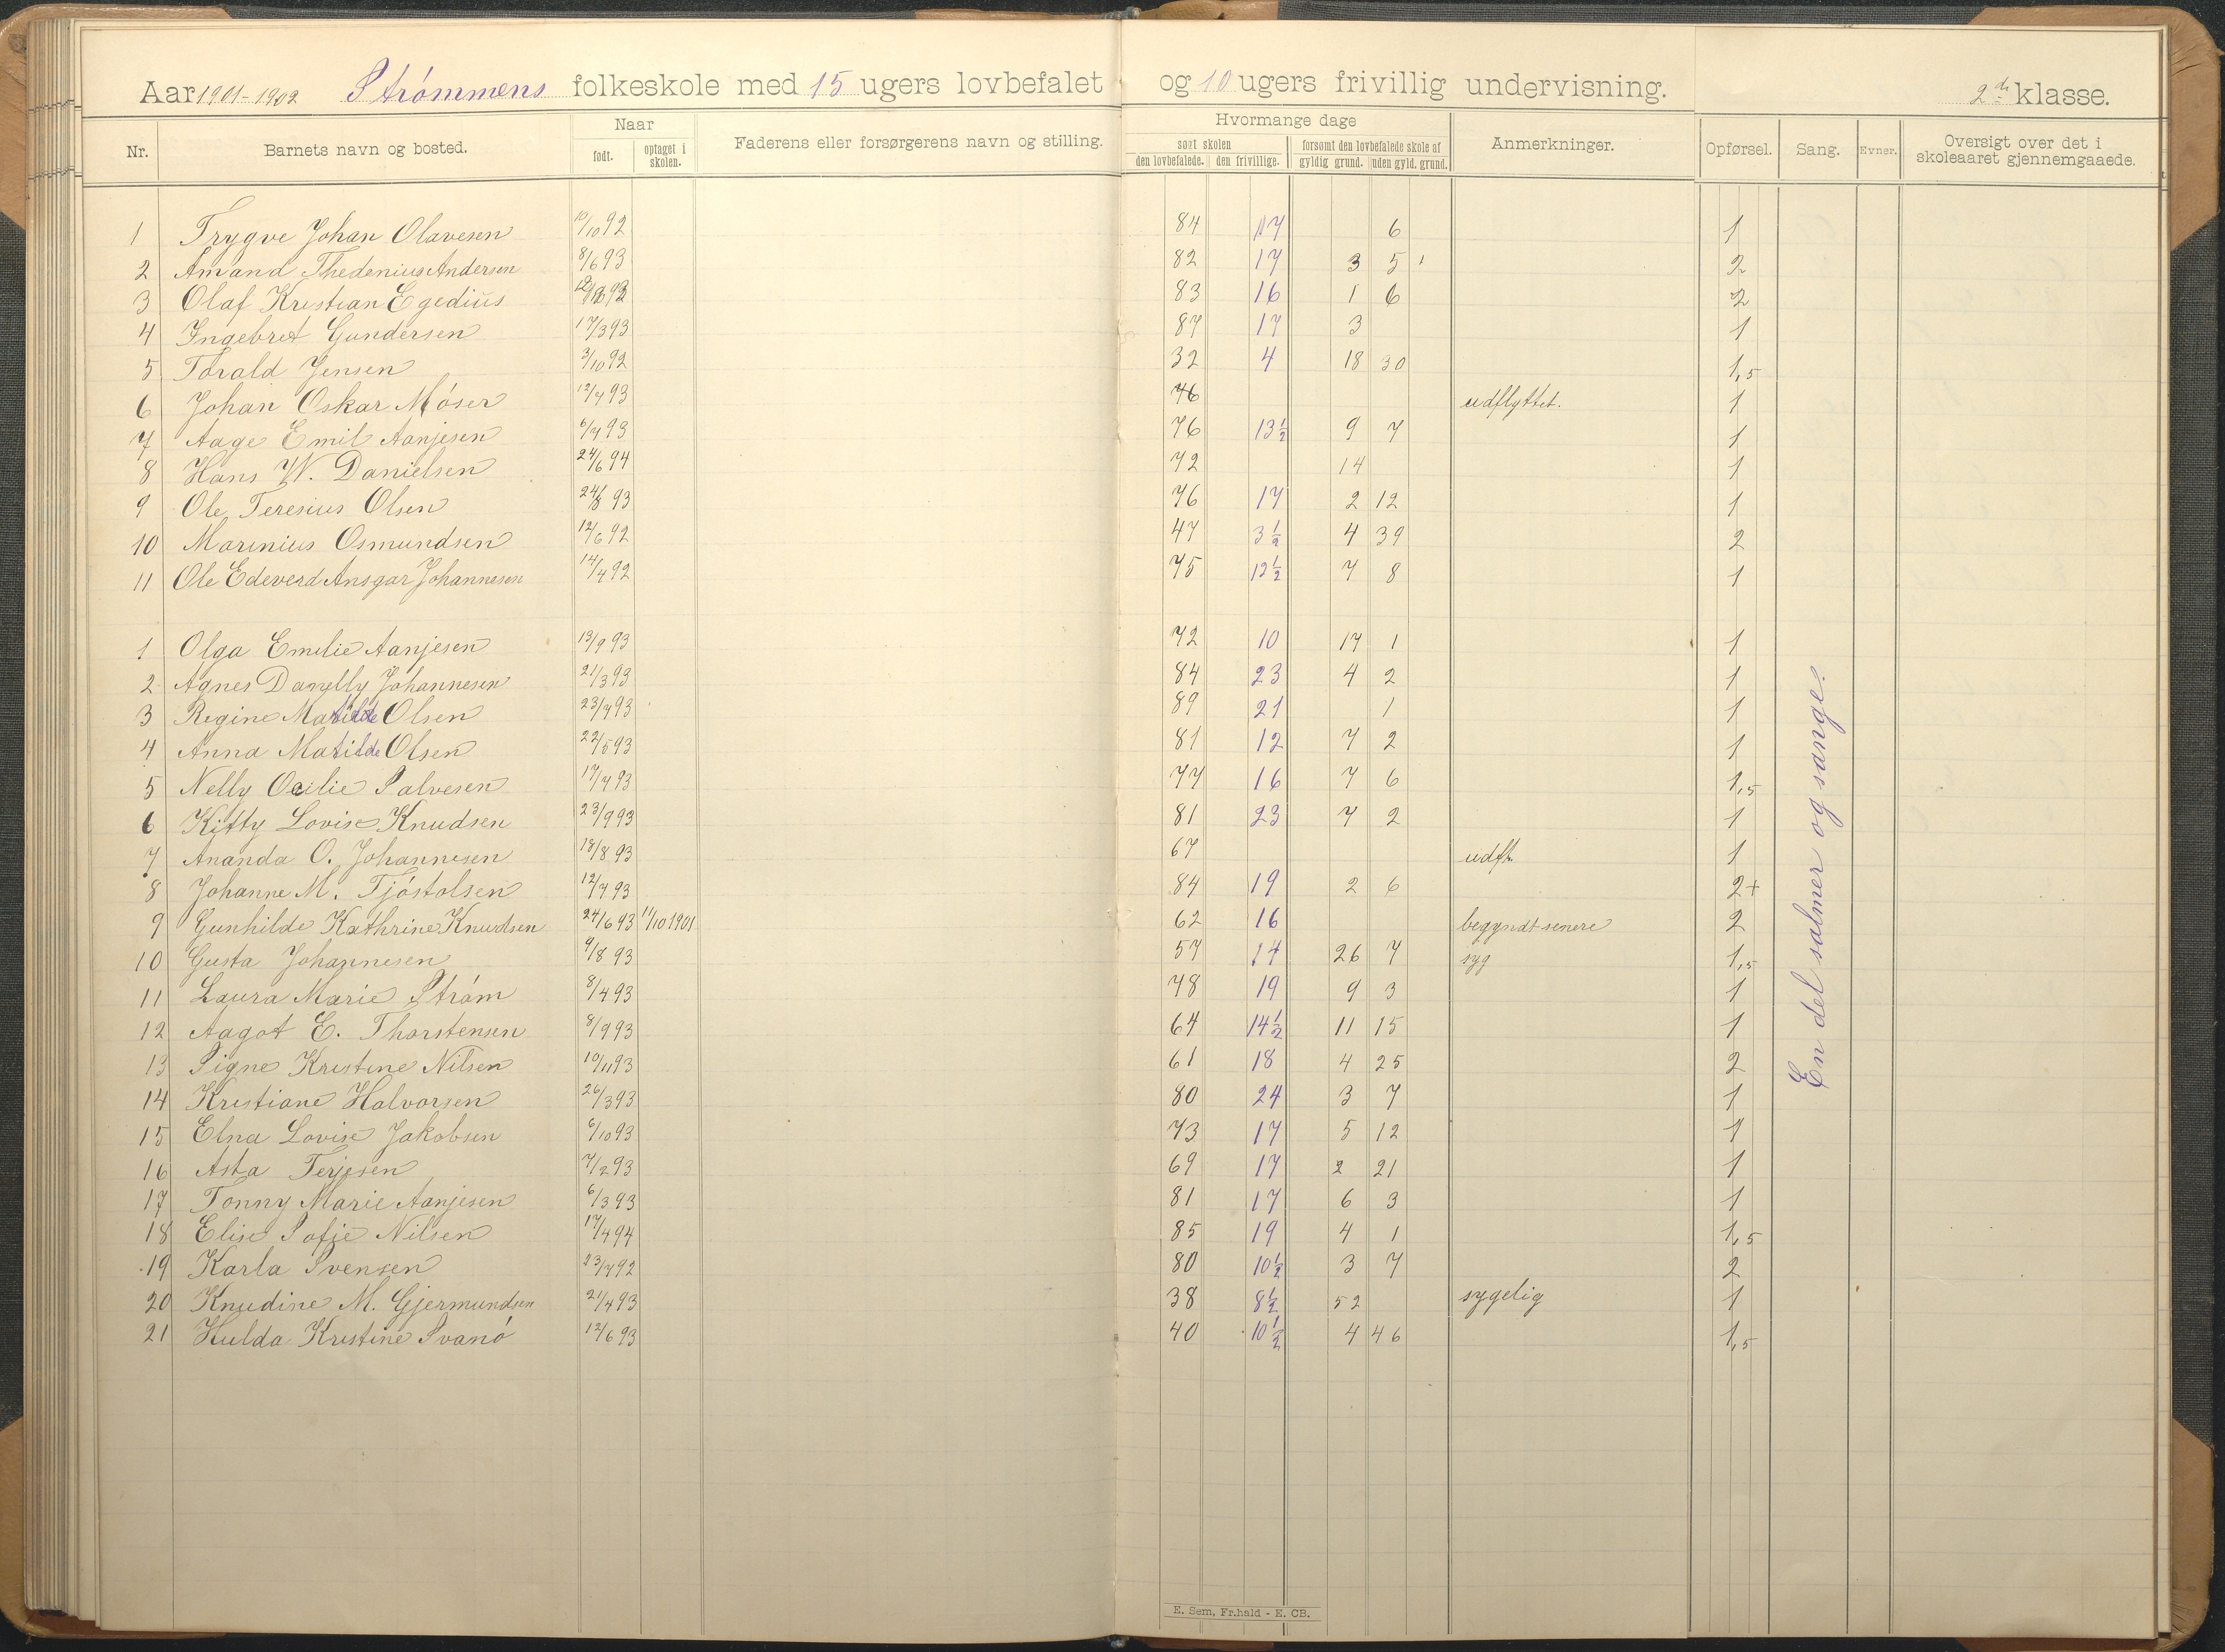 Aar 1901-1902 Strømmens folkeskole med 15 ugers lovbefalet og 10 ugers frivillig undervisning. 2den klasse.
Nr. Barnets navn og bosted. Naar født. optaget i skolen. Faderens eller forsørgerens navn og stilling. Hvormange dage søgt skolen den lovbefalede. den frivillige. forsømt den lovbefalede skole af gyldig grund. uden gyld. grund. Anmerkninger. Opførsel. Sang. Evner. Oversigt over det i skoleaaret gjennemgaaede.
1 Trygve Johan Olavesen 10/10 92 84 17 6 1
2 Amand Thedenius Andersen 8/6 93 82 17 3 5 1 2
3 Olaf Kristian Egedius 83 16 1 6 2
4 Ingebret Gundersen 17/3 93 87 17 3 1
5 Torald Jensen 3/10 92 32 4 18 30 1,5
6 Johan Oskar Møser 12/7 93 76 udflyttet. 1
7 Aage Emil Aanjesen 6/7 93 76 13½ 9 7 1
8 Hans W. Danielsen 24/6 94 72 14 1
9 Ole Teresius Olsen 24/8 93 76 17 2 12 1
10 Marinius Osmundsen 12/6 92 47 3½ 4 39 2
11 Ole Edeverd Ansgar Johannesen 14/7 92 75 12½ 7 8 1
1 Olga Emilie Aanjesen 13/9 93 72 10 17 1 1
2 Agnes Danelly Johannesen 21/3 93 84 23 4 2 1
3 Regine Matilde Olsen 23/7 93 89 21 1 1
4 Anna Matilde Olsen 22/5 93 81 12 7 2 1
5 Nelly Ocilie Salvesen 17/7 93 77 16 7 6 1,5
6 Kitty Lovise Knudsen 23/9 93 81 23 7 2 1
7 Ananda O. Johannesen 18/8 93 67 udfl. 1
8 Johanne M. Tjøstolsen 12/7 93 84 19 2 6 2+
9 Gunhilde Kathrine Knudsen 24/6 93 11/10 1901 62 16 begyndt senere 2
10 Gusta Johannesen 9/8 93 57 14 26 7 syg 1,5
11 Laura Marie Strøm 8/4 93 78 19 9 3 1
12 Aagot E. Thorstensen 8/9 93 64 14½ 11 15 1
13 Signe Kristine Nilsen 10/11 93 61 18 4 25 2
14 Kristiane Halvorsen 26/3 93 80 24 3 7 1
15 Elna Lovise Jakobsen 6/10 93 73 17 5 12 1
16 Asta Terjesen 7/2 93 69 17 2 21 1
17 Tonny Marie Aanjesen 6/3 93 81 17 6 3 1
18 Elise Sofie Nilsen 17/4 94 85 19 4 1 1,5
19 Karla Svensen 23/7 92 80 10½ 3 7 2
20 Knudine M. Gjermundsen 21/4 93 38 8½ 52 sygelig 1
21 Hulda Kristine Svanø 12/6 93 40 10½ 4 46 1,5
En del salmer og sange.
E. Sem, Fr.hald - E. CB.